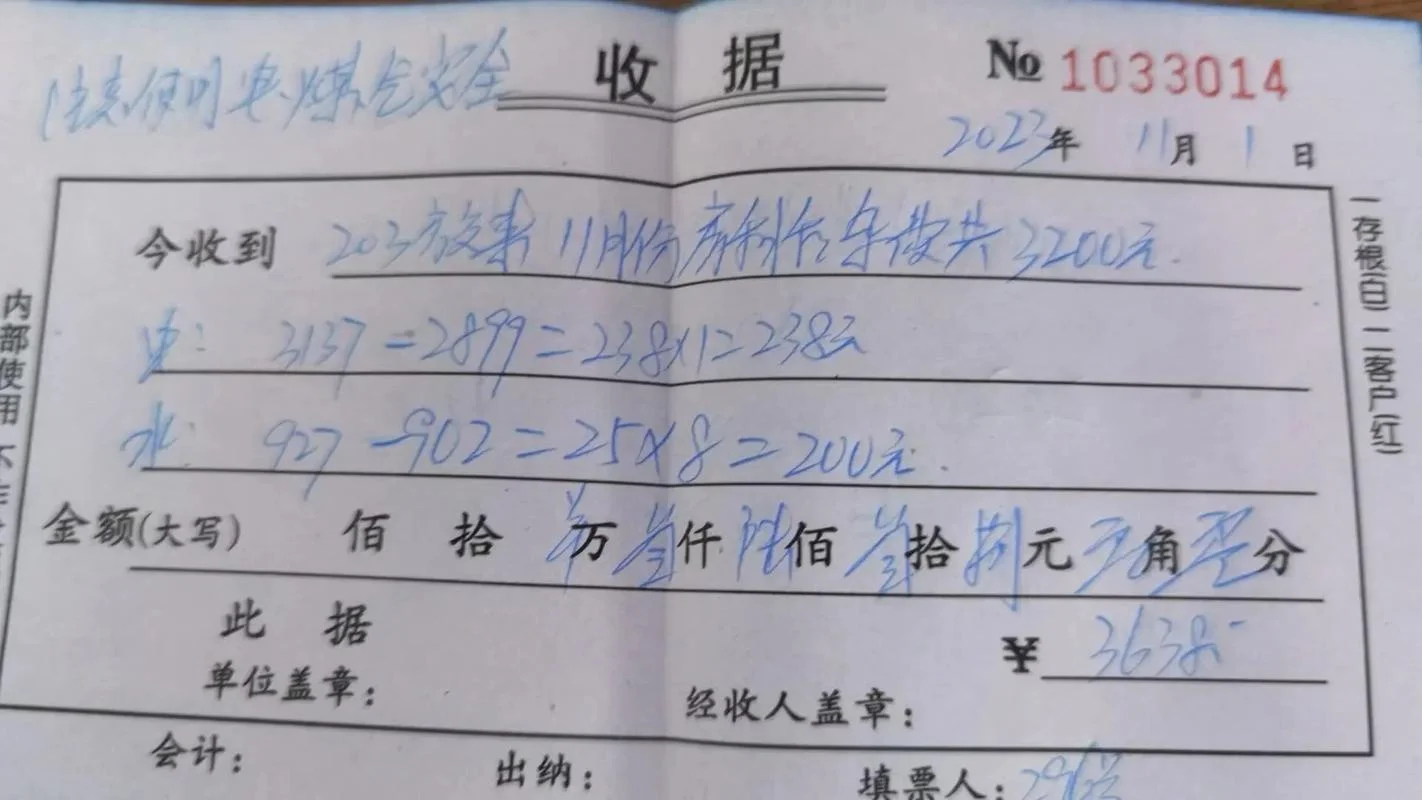 注意使用电.煤气安全
收据
№ 1033014
2023年 11月 1日
今收到 203 11月份房 共3200元.
电: 3137-2899=238×1=238元
水: 927-902=25×8=200元.
金额(大写) 佰 拾 万 叁仟 陆佰 叁拾 捌元 零角 零分
此据
¥ 3638-
单位盖章:
经收人盖章:
会计: 出纳: 填票人:
一存根(白) 二客户(红)
内部使用